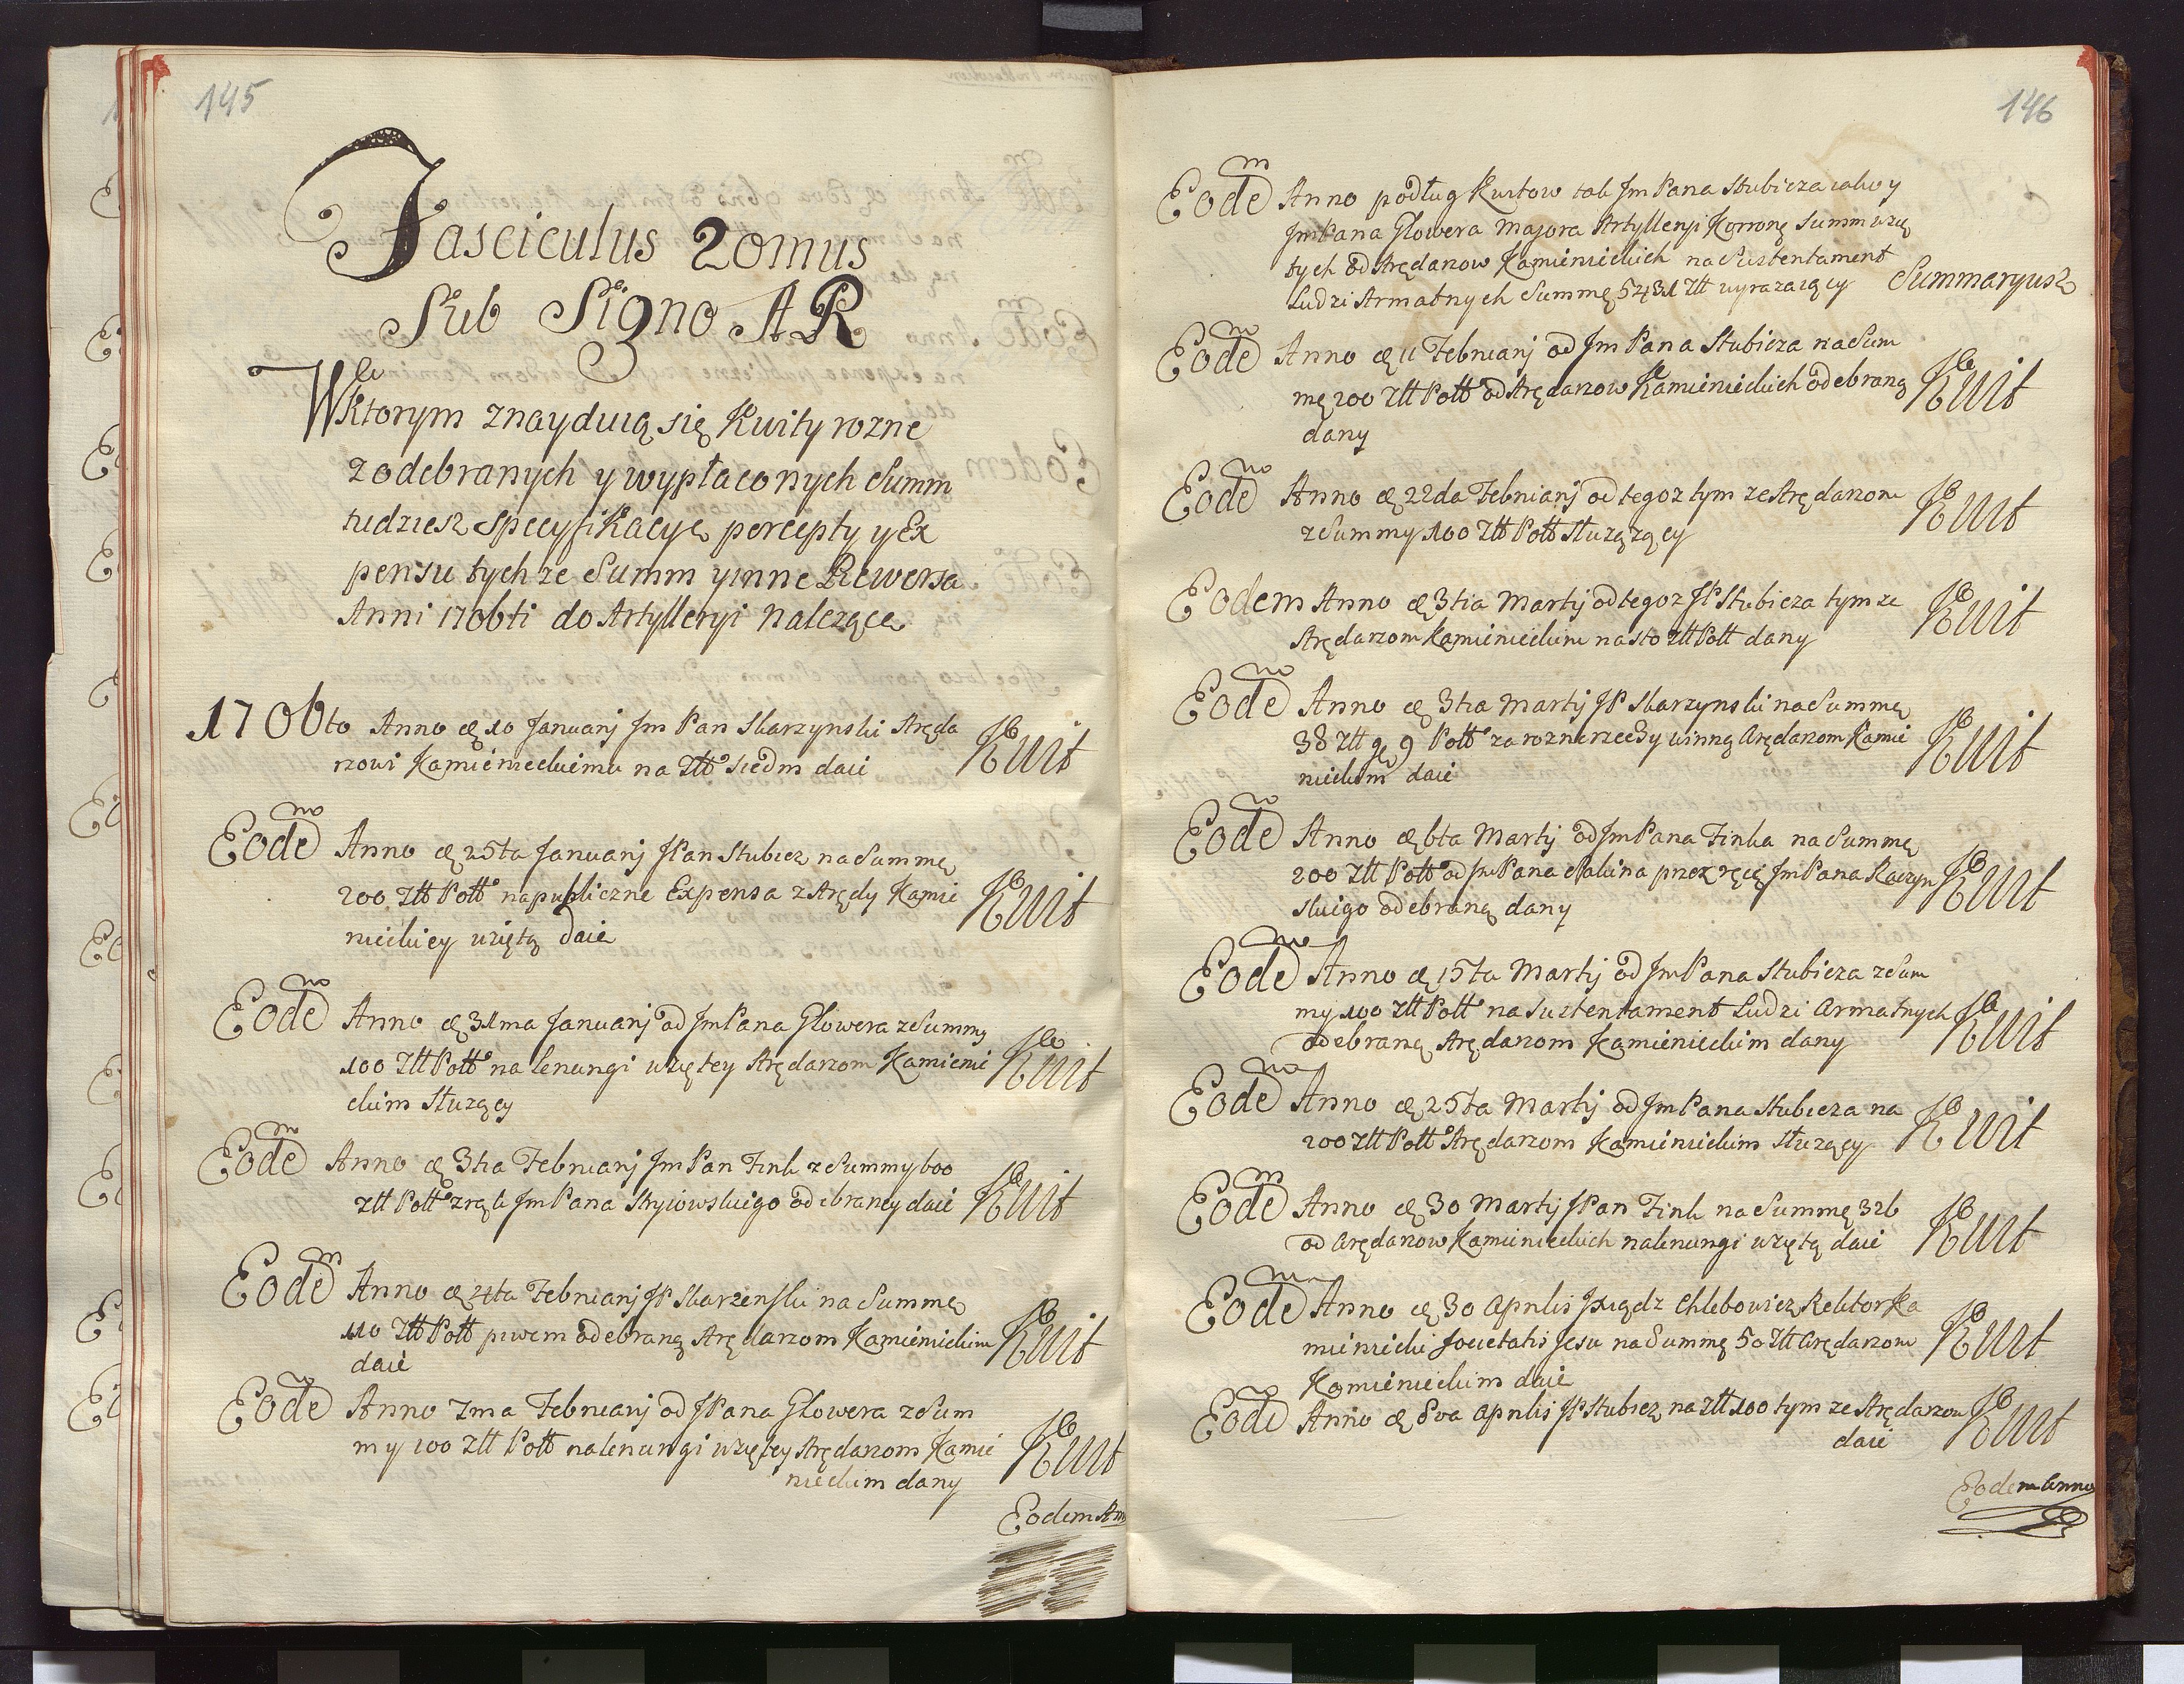 145
Fasciculus 2omus
Sub Signo AR
W ktorym znayduią się Kwity rozne
z odebranych y wypłaconych Summ
tudziesz Specyfikacye percepty y Ex
pensu tych ze Summ y inne Rewersa
Anni 1706ti do Artylleryi Należące
1706to Anno 10 Januarj Jm Pan Skarzynski Aręda
rzowi Kamienieckiemu na Złł siedm daie
Kwit
Eodem Anno 25ta Januarj JPan Stubicz na Summę
200 Złł Poll na publiczne Expensa z Arędy Kamie
nieckiey wziętą daie
Kwit
Eodem Anno 31ma Januarj od Jm Pana Glowera z Summy
100 Złł Poll na lenungi wziętey Arędarzom Kamieni
ckim Służący
Kwit
Eodem Anno 3tia Februarj Jm Pan Fink z Summy 600
Złł Poll z rąk Jm Pana Stryiowskiego odebraney daie
Kwit
Eodem Anno 4ta Februarj JP Skarzenski na Summę
110 Złł Poll odebraną Arędarzom Kamienieckim
daie
Kwit
Eodem Anno 7ma Februarj od JPana Glowera z Sum
my 100 Złł Poll na lenungi wziętey Arędarzom Kamie
nieckim dany
Kwit
Eodem Ann
146
Eodem Anno podług Kwitow tak Jm Pana Stubicza iako y
Jm Pana Glowera Majora Artylleryi Korronę Summ wzię
tych od Arędarzow Kamienieckich na Sustentament
Ludzi Armatnych Summę 5431 Złł wyrazaiący
Summaryusz
Eodem Anno 11 Februarj od Jm Pana Stubicza na Sum
mę 200 Złł Poll od Arędarzow Kamienieckich odebraną
dany
Kwit
Eodem Anno 22da Februarj od tegoz tym ze Arędarzom
z Summy 100 Złł Poll Służący
Kwit
Eodem Anno 3tia Martij od tegoz JP Stubicza tym ze
Arędarzom Kamienieckim na sto Złł Poll dany
Kwit
Eodem Anno 3tia Martij JP Skarzynski na Summę
38 Złł g 9 Poll za rozne rzeczy winną Arędarzom Kamie
nieckim daie
Kwit
Eodem Anno 6ta Martij od Jm Pana Finka na Summę
200 Złł Poll od Jm Pana przez ręcę Jm Pana Raczyn
skiego odebraną dany
Kwit
Eodem Anno 15ta Martij od Jm Pana Stubicza z Sum
my 100 Złł Poll na Sustentament Ludzi Armatnych
odebraną Arędarzom Kamienieckim dany
Kwit
Eodem Anno 25ta Martij od Jm Pana Stubicza na
200 Złł Poll Arędarzom Kamienieckim Służący
Kwit
Eodem Anno 30 Martij JPan Fink na Summę 326
od Arędarzow Kamienieckich na lenungi wziętą daie
Kwit
Eodem Anno 30 Aprilis Xiądz Chlebowicz Rektor Ka
mieniecki Societatis Jesu na Summę 50 Złł Arędarzom
Kamienieckim daie
Kwit
Eodem Anno 8va Aprilis JP Stubicz na Złł 100 tym ze Arędarzom
daie
Kwit
Eodem Anno